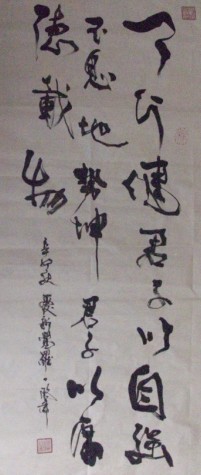 天行健君子以自强
不息地势坤君子以厚
德载物